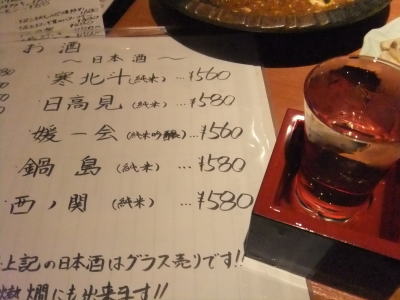 お酒
～日本酒～
寒北斗(純米)…¥560
日高見(純米)…¥580
媛一会(純米吟醸)…¥560
鍋島(純米)…¥580
西ノ関(純米)…¥580
上記の日本酒はグラス売りです!!
燗にも出来ます!!